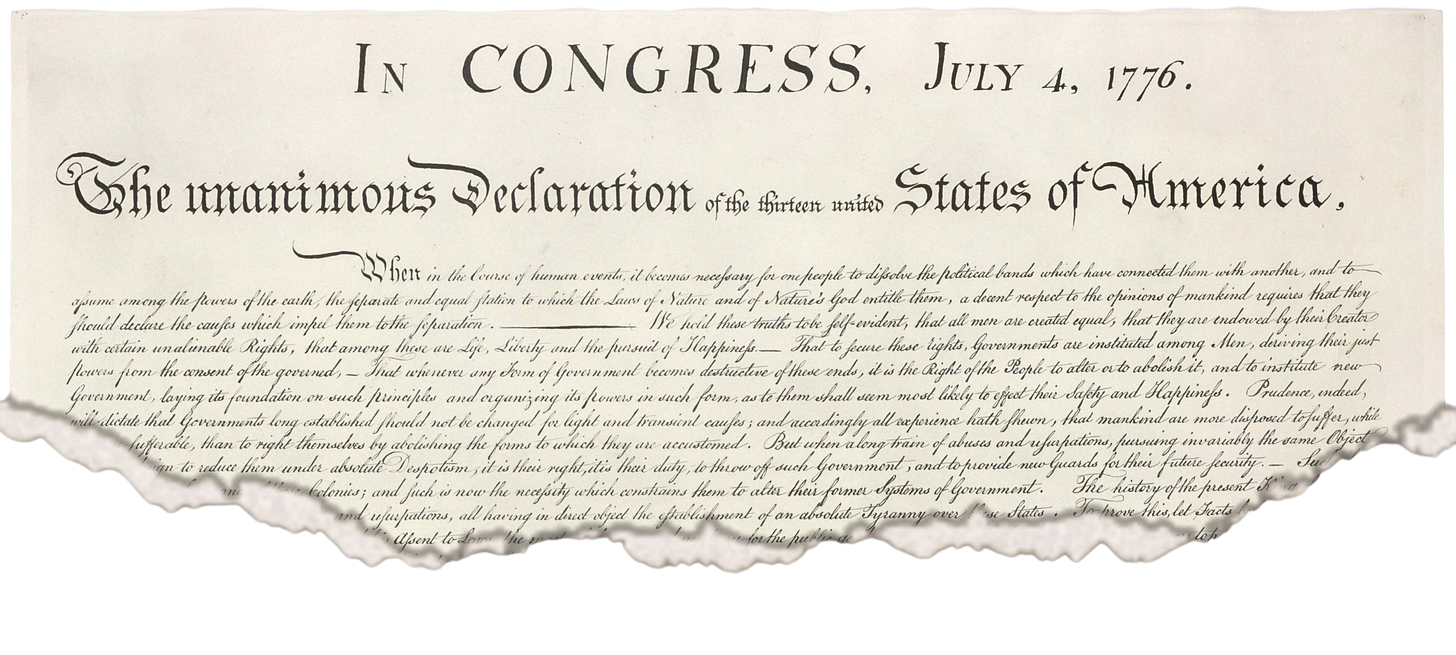 In CONGRESS, July 4, 1776.
The unanimous Declaration of the thirteen united States of America,
When in the Course of human events, it becomes necessary for one people to dissolve the political bands which have connected them with another, and to
assume among the powers of the earth, the separate and equal station to which the Laws of Nature and of Nature's God entitle them, a decent respect to the opinions of mankind requires that they
should declare the causes which impel them to the separation. ——— We hold these truths to be self-evident, that all men are created equal, that they are endowed by their Creator
with certain unalienable Rights, that among these are Life, Liberty and the pursuit of Happiness.— That to secure these rights, Governments are instituted among Men, deriving their just
powers from the consent of the governed,— That whenever any Form of Government becomes destructive of these ends, it is the Right of the People to alter or to abolish it, and to institute new
Government, laying its foundation on such principles and organizing its powers in such form, as to them shall seem most likely to effect their Safety and Happiness. Prudence, indeed,
will dictate that Governments long established should not be changed for light and transient causes; and accordingly all experience hath shewn, that mankind are more disposed to suffer, while
sufferable, than to right themselves by abolishing the forms to which they are accustomed. But when a long train of abuses and usurpations, pursuing invariably the same Object
to reduce them under absolute Despotism, it is their right, it is their duty, to throw off such Government, and to provide new Guards for their future security.—
Colonies; and such is now the necessity which constrains them to alter their former Systems of Government. The history of the present
and usurpations, all having in direct object the establishment of an absolute Tyranny over States. To prove this, let Facts
Assent to for the public